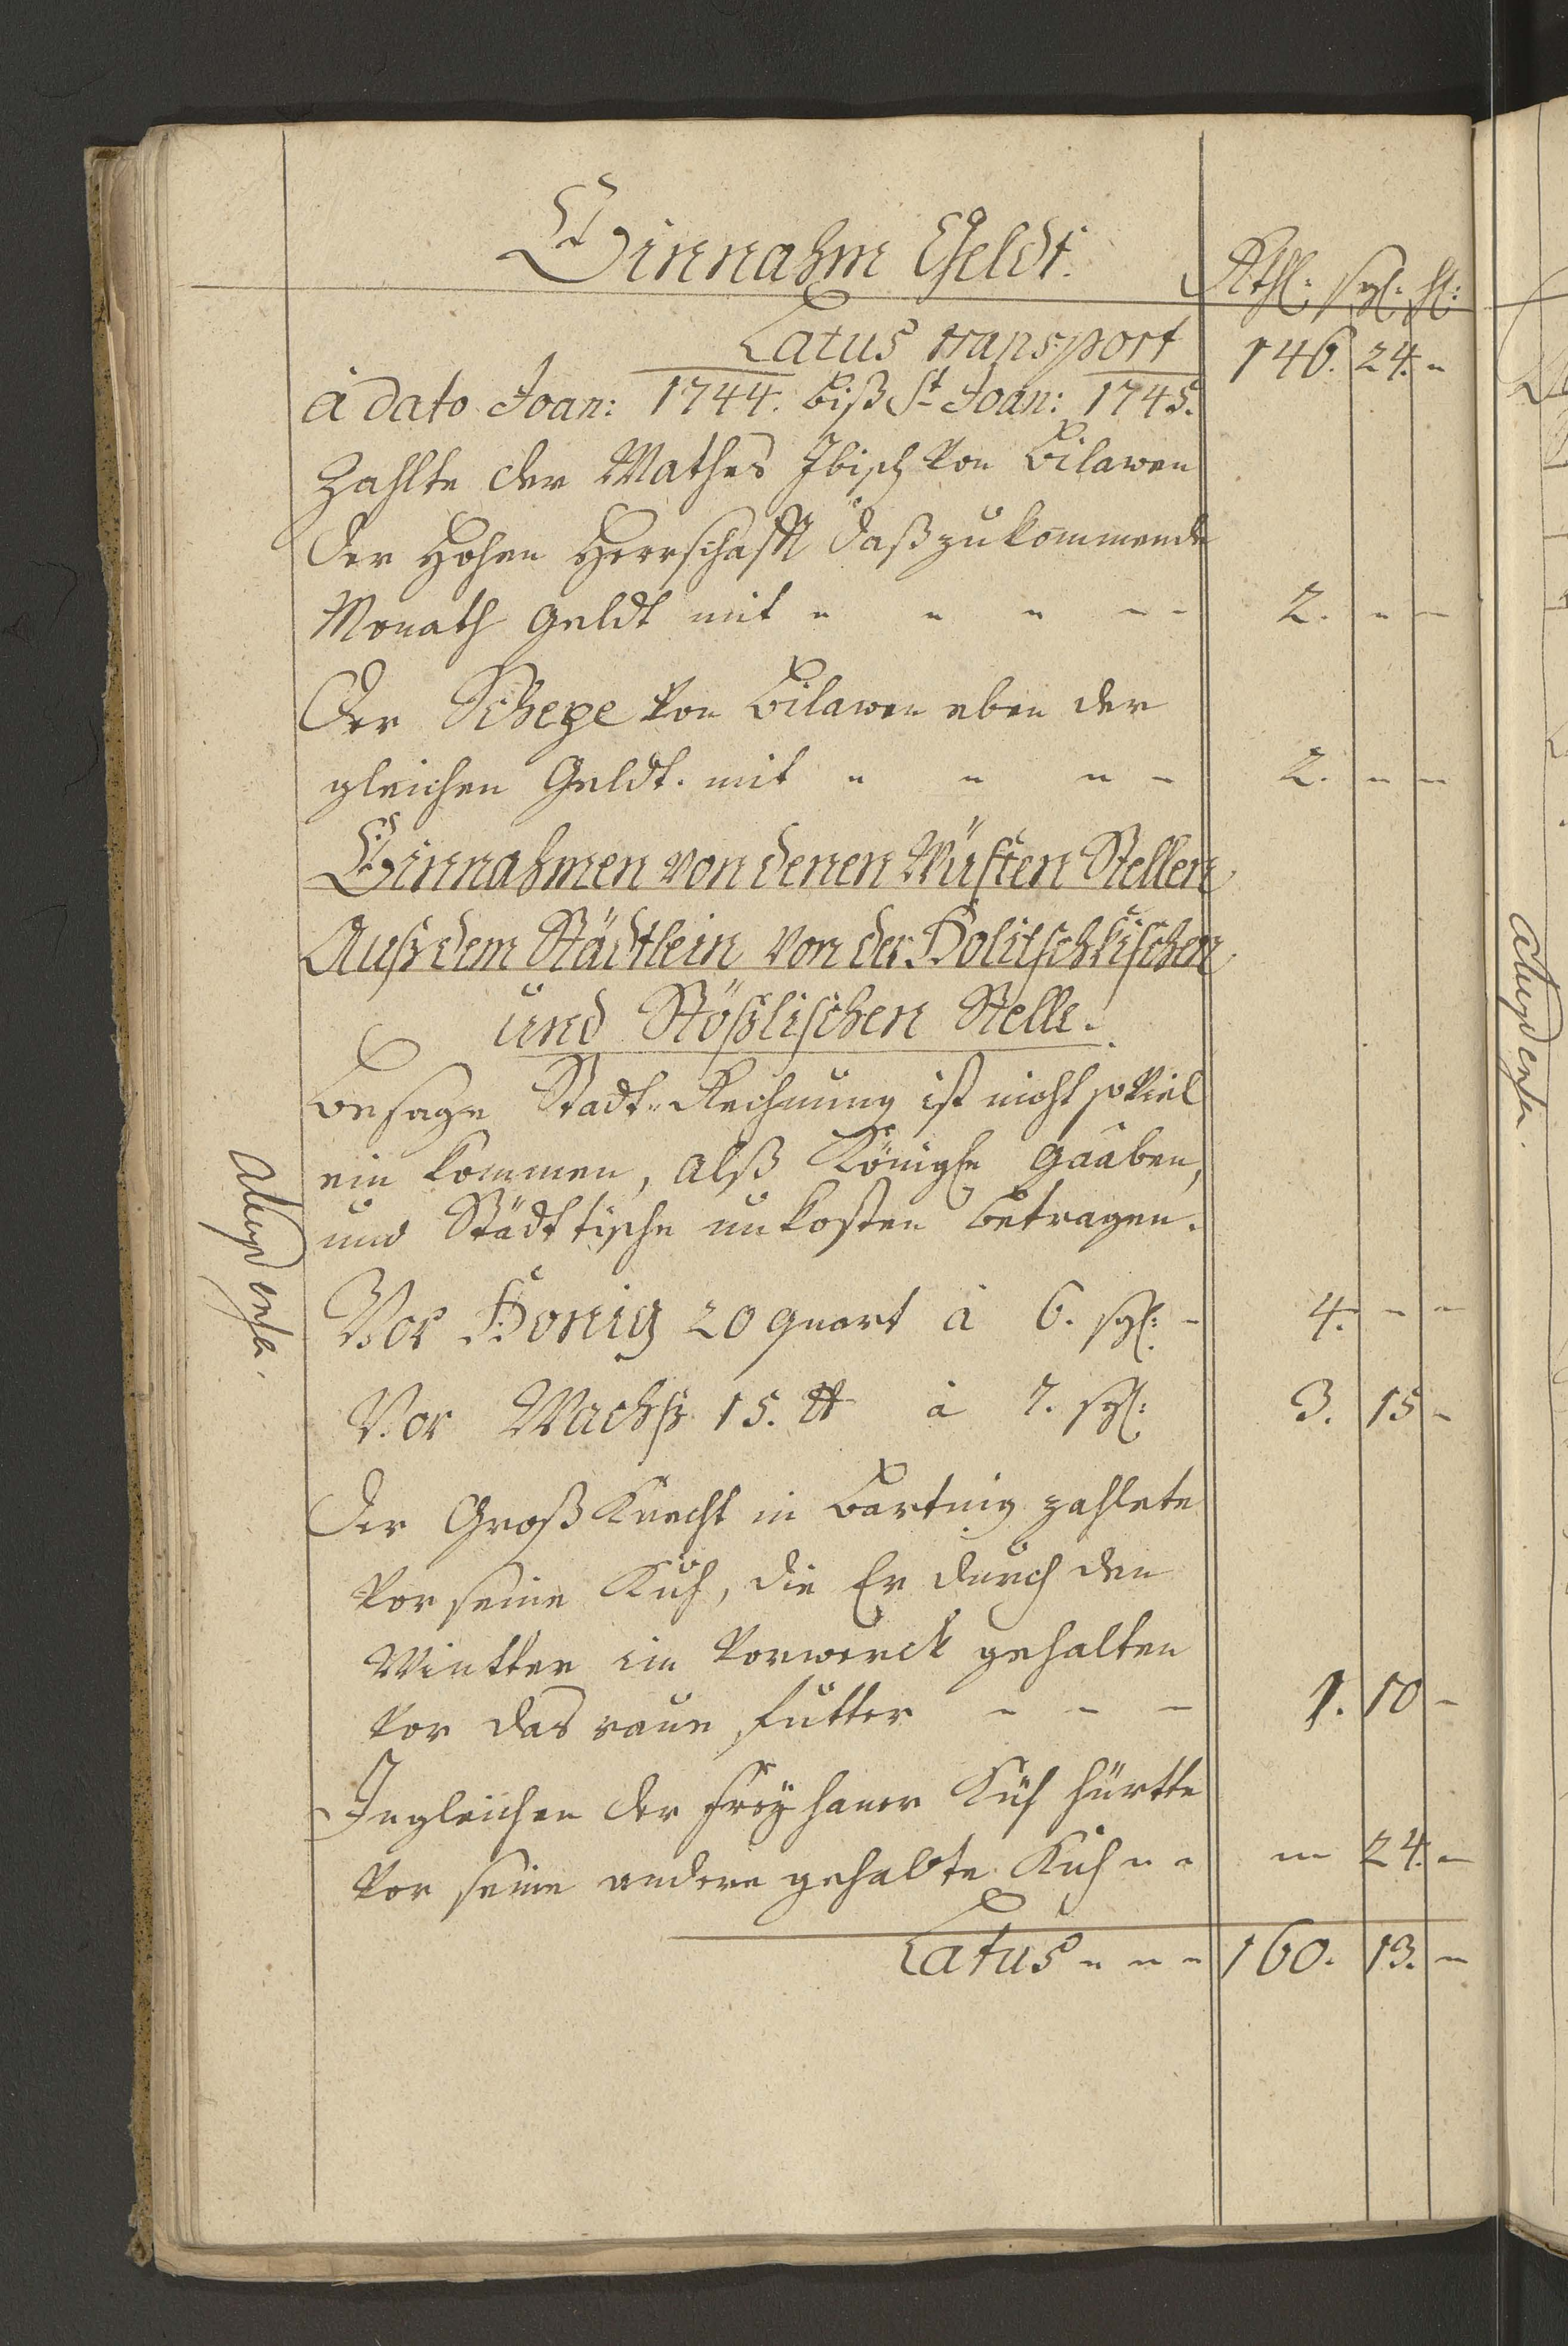 Einnahm Geldt.
Rthl: sgl: hl:
Latus transport 146. 24. -
à dato Joan: 1744. biß St Joan: 1745.
Zahlte der Mathes Ibisch von Bilawen
der Hohen Herrschafft daß zukommende
Monath Geldt mit - - - - - 2. - -
Der Schepe von Bilawen eben der
gleichen Geldt. mit - - - - 2. - -
Einnahmen von denen Wüsten Stellen
Auß dem Städtlein von der Holitschkischen
und Stößlischen Stelle.
Besage Stadt-Rechnung ist nicht so viel
ein kommen, alß Königle Gaaben,
und Städttische unkosten betragen.
Vor Honig 20 quart à 6. sgl: - 4. - -
Vor Wachß 15. ℔ à 7. sgl: 3. 15 -
Der Groß Knecht in Bartnig zahlete
vor seine Kuh, die Er durch den
Wintter im Vorwerck gehalten
vor das raue futter - - - 1. 10 -
Ingleichen der Freyhaner Küh hürtte
vor seine andere gehabte Kuh - - - 24. -
Latus - - - 160. 13. -